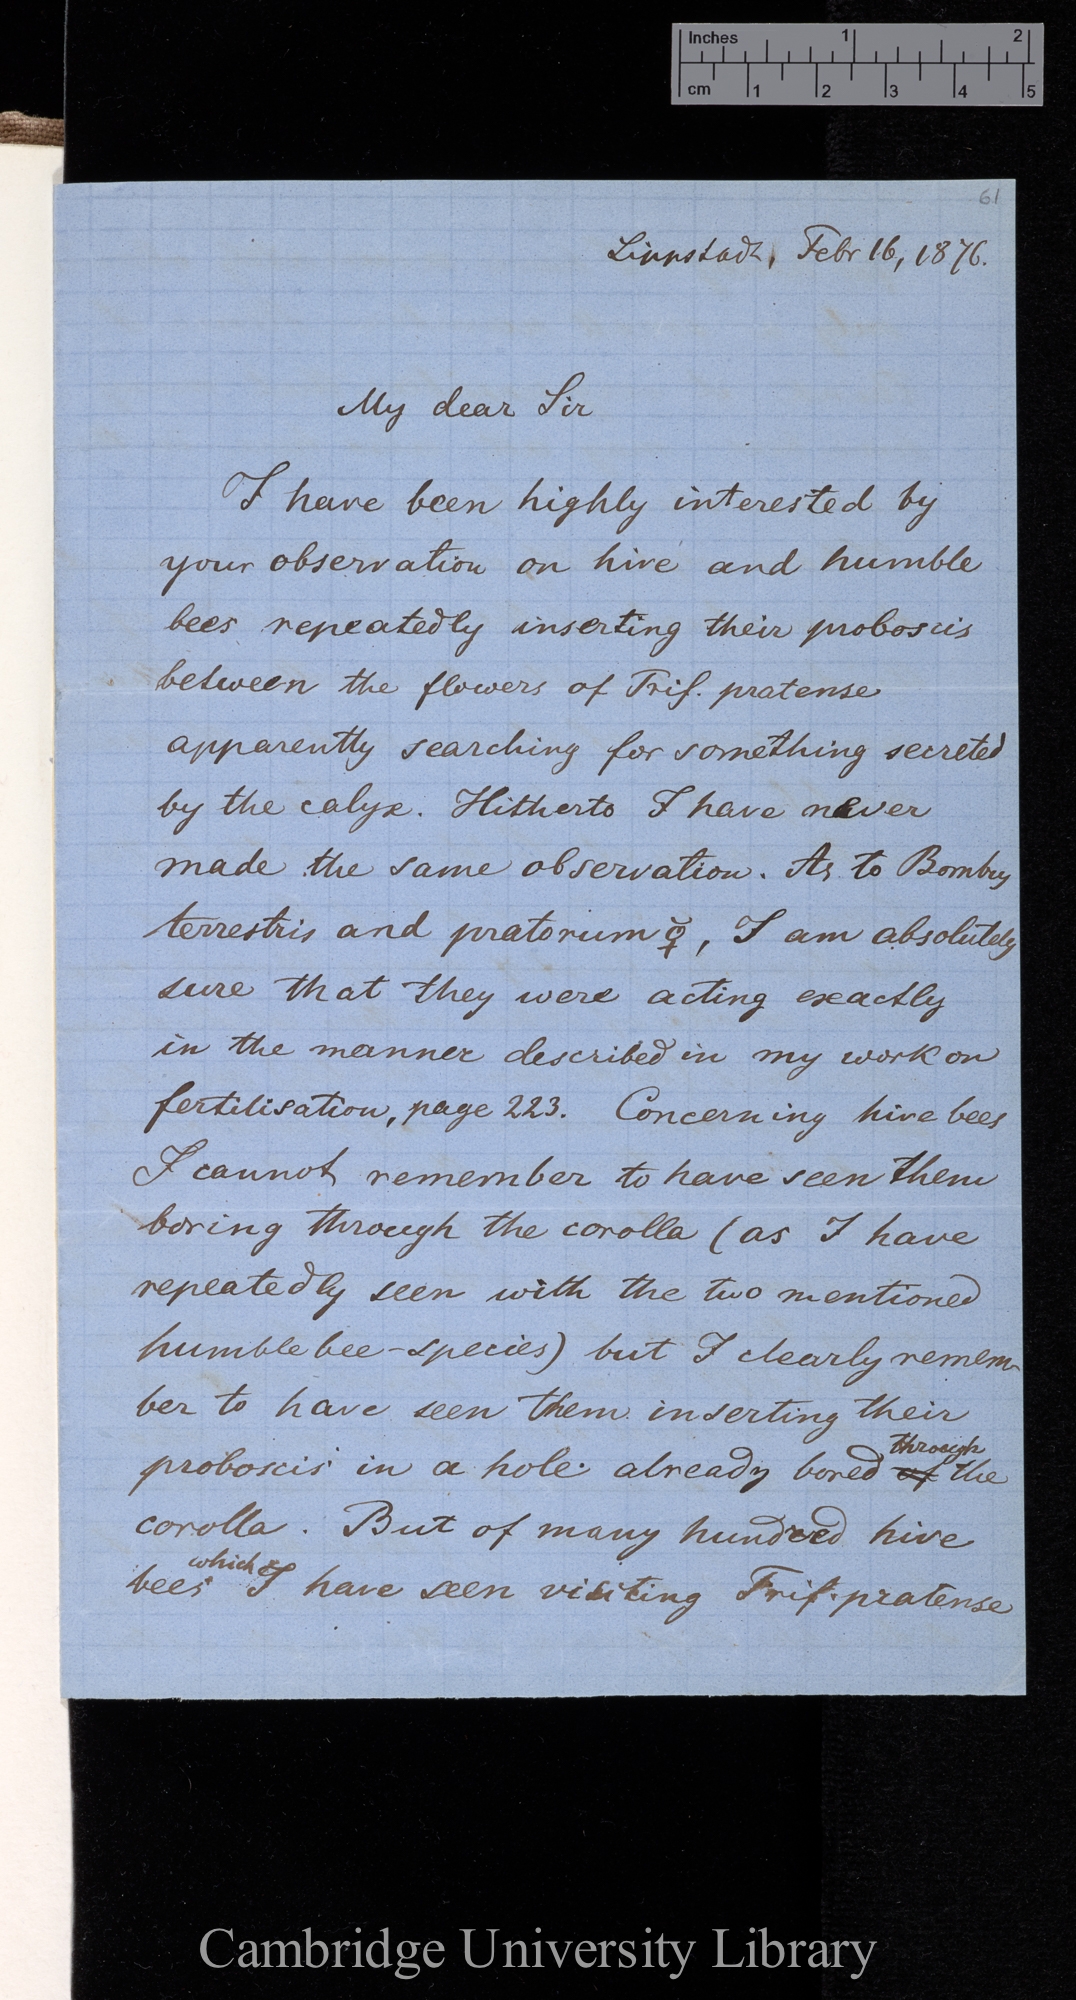 Inches 1 2
cm 1 2 3 4 5
61
Lippstadt, Febr 16, 1876.
My dear Sir
I have been highly interested by
your observation on hive and humble
bees repeatedly inserting their proboscis
between the flowers of Trif. pratense
apparently searching for something secreted
by the calyx. Hitherto I have never
made the same observation. As to Bombus
terrestris and pratorum ☿, I am absolutely
sure that they were acting exactly
in the manner described in my work on
fertilisation, page 223. Concerning hive bees
I cannot remember to have seen them
boring through the corolla (as I have
repeatedly seen with the two mentioned
humble bee-species) but I clearly remem-
ber to have seen them inserting their
proboscis in a hole already bored through the
corolla. But of many hundred hive
bees which I have seen visiting Trif. pratense
Cambridge University Library